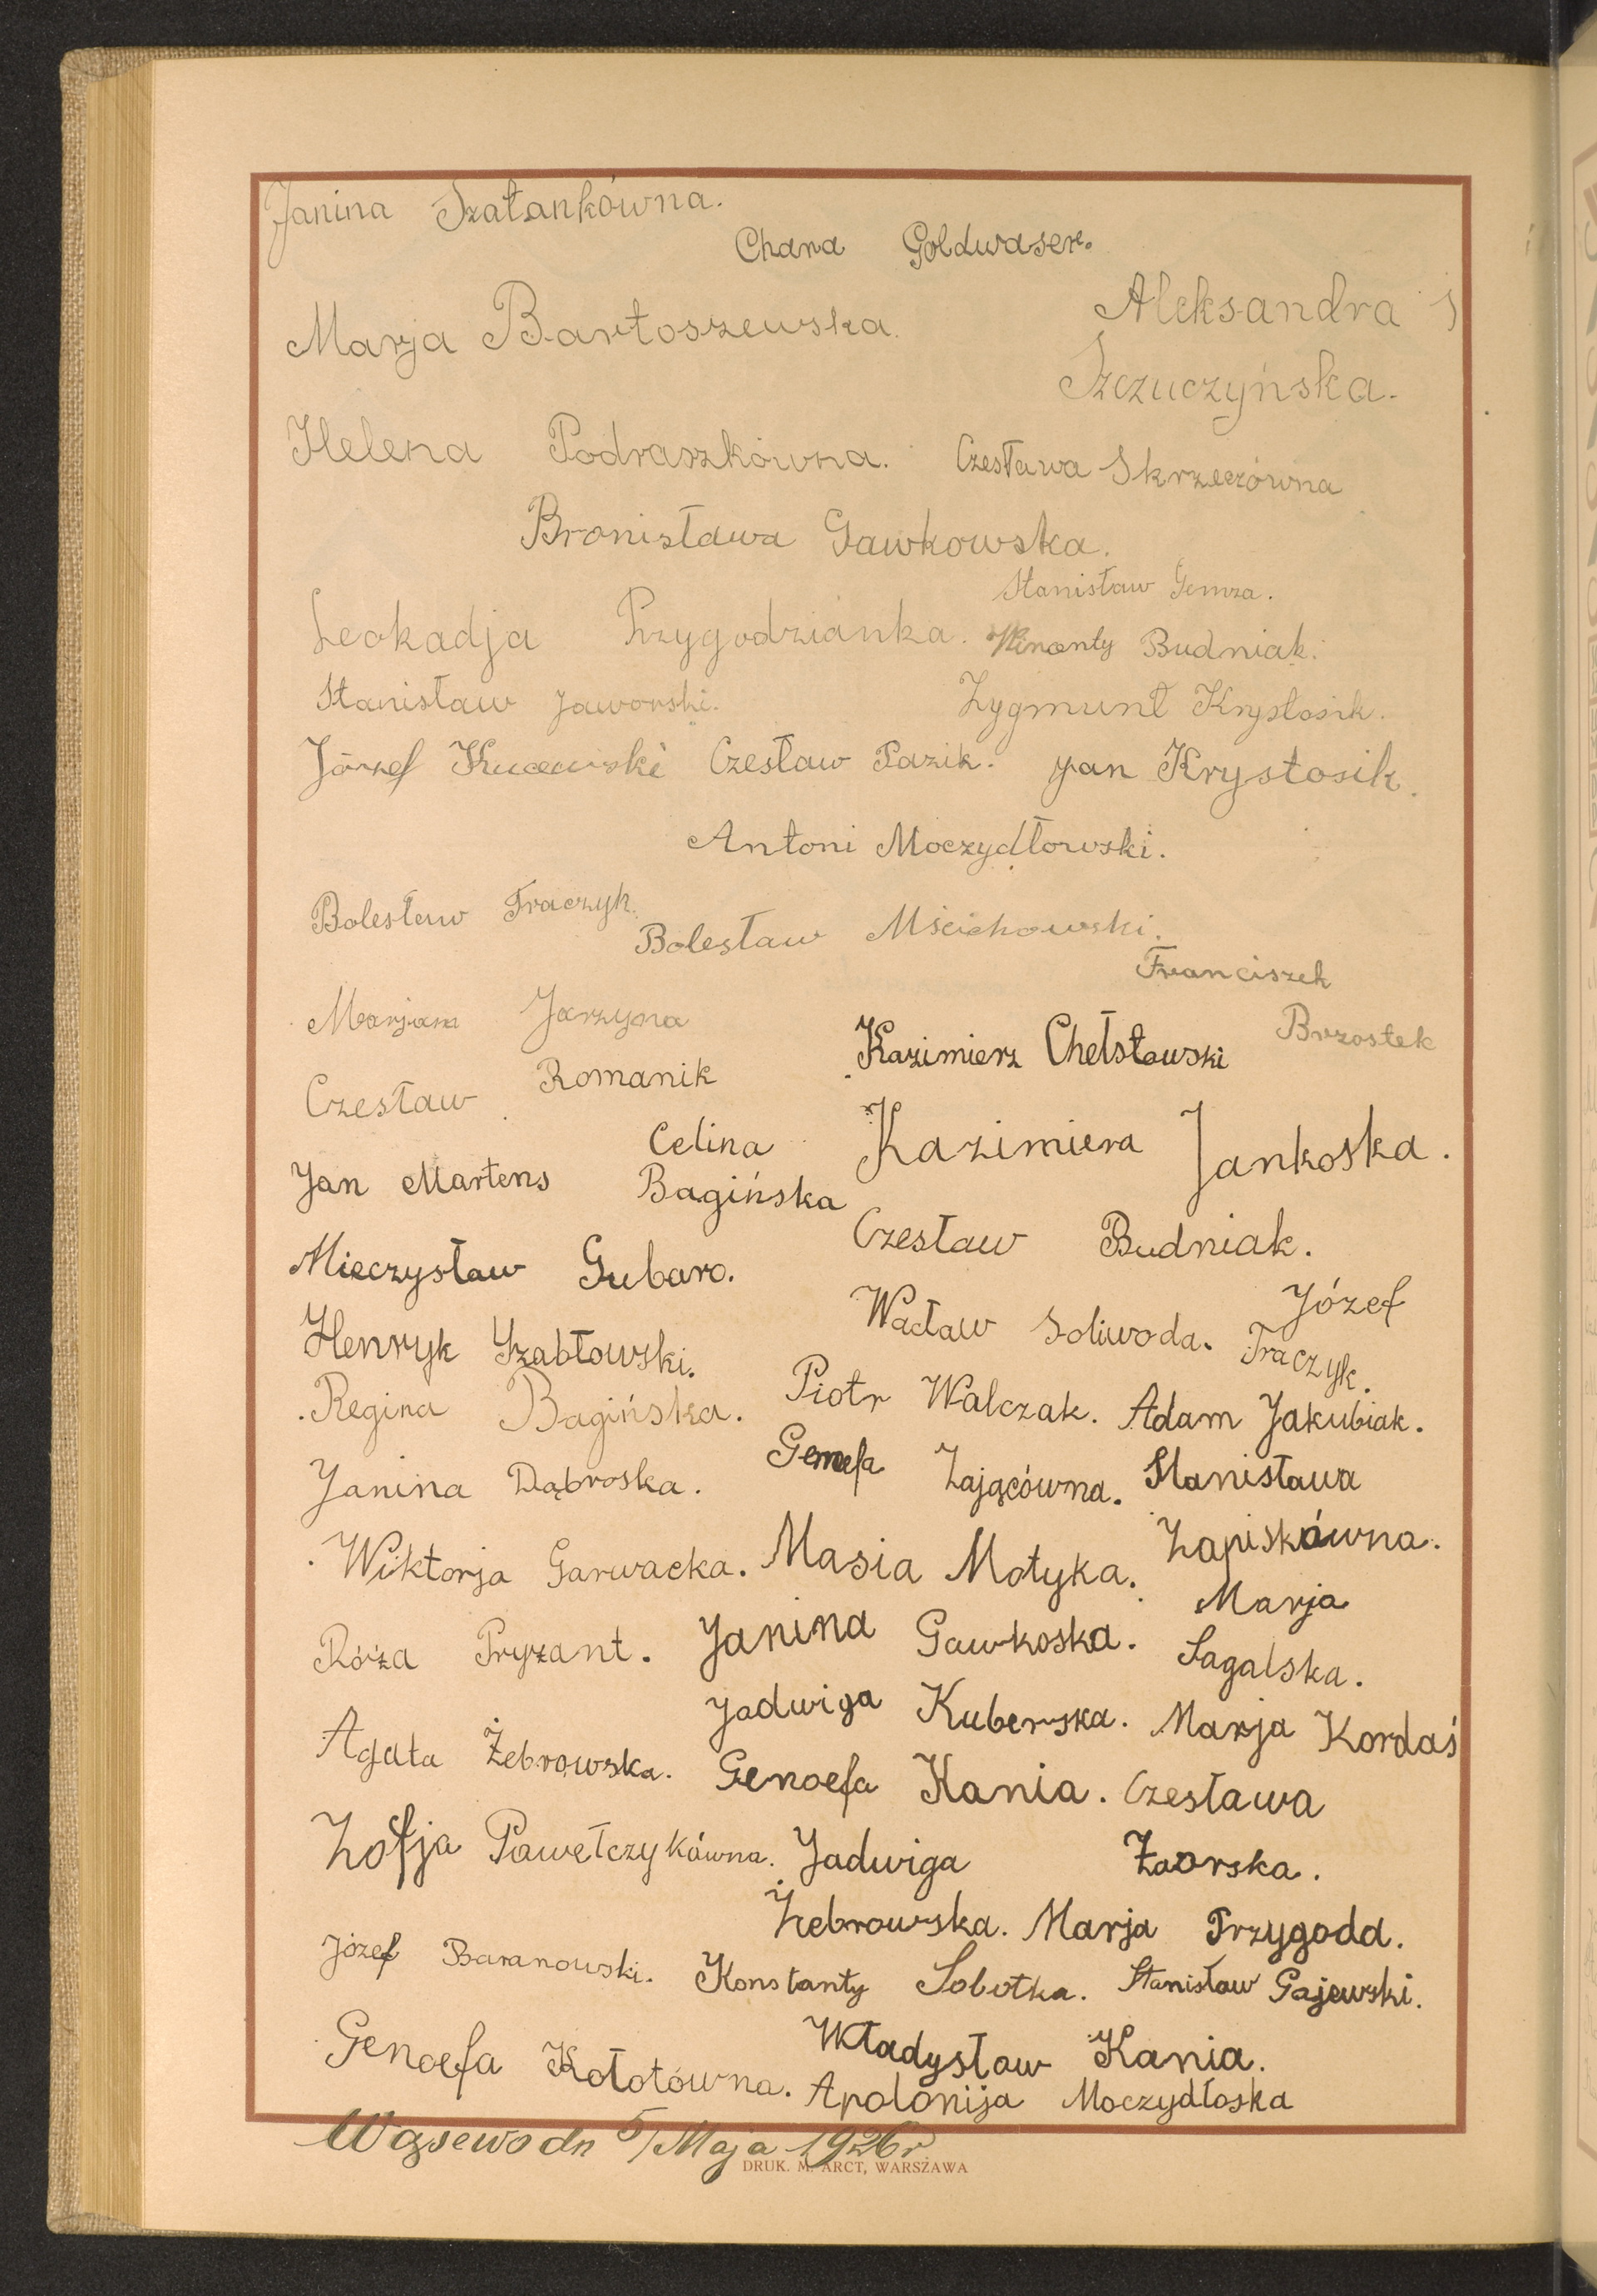 Janina Szatankówna.
Chana Goldwaser.
Marja Bartoszewska.
Aleksandra S
Szczuczyńska.
Helena Podraszkówna. Czesława Skrzeczówna
Bronisława Gawkowska.
Stanisław Gemza.
Leokadja Przygodzianka. Budniak.
Stanisław Jaworski. Zygmunt Krystosik.
Józef Kucewiski Czesław Pazik. Jan Krystosik.
Antoni Moczydłowski.
Bolesław Traczyk.
Bolesław Mścichowski.
Franciszek
Marjan Jarzyna
Kazimierz Chełstowski Brzostek
Czesław Romanik
Celina Kazimiera Jankoska.
Jan Martens Bagińska
Czesław Budniak.
Mieczysław Gubaro.
Józef
Wacław Soliwoda. Traczyk.
Henryk Szabłowski.
Regina Bagińska. Piotr Walczak. Adam Jakubiak.
Janina Dąbroska. Genefa Zającówna. Stanisława
Zapiskówna.
Wiktorja Garwacka. Masia Motyka.
Marja
Róża Pryzant. Janina Gawkoska. Sagalska.
Jadwiga Kuberska. Marja Kordaś
Agata Żebrowska. Genoefa Kania. Czesława
Zofja Pawełczykówna. Jadwiga Zaorska.
Żebrowska. Marja Przygoda.
Józef Baranowski. Konstanty Sobotka. Stanisław Gajewski.
Władysław Kania.
Genoefa Kołotówna. Apolonija Moczydłoska
Wąsewo dn 5/Maja 1926 r.
DRUK. M. ARCT, WARSZAWA